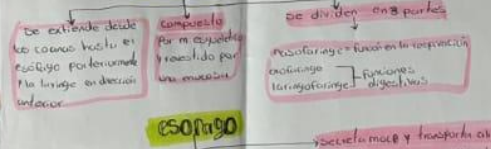 De extiende desde
las coanas hasta el
esófago posteriormente
y la laringe en dirección
anterior
compuesto
Por m esquelético
revestido por
una mucosa
Se dividen en 3 partes
Nasofaringe = función en la respiración
orofaringe
laringofaringe
Funciones
digestivas
esofago
Secreta moco y transporta